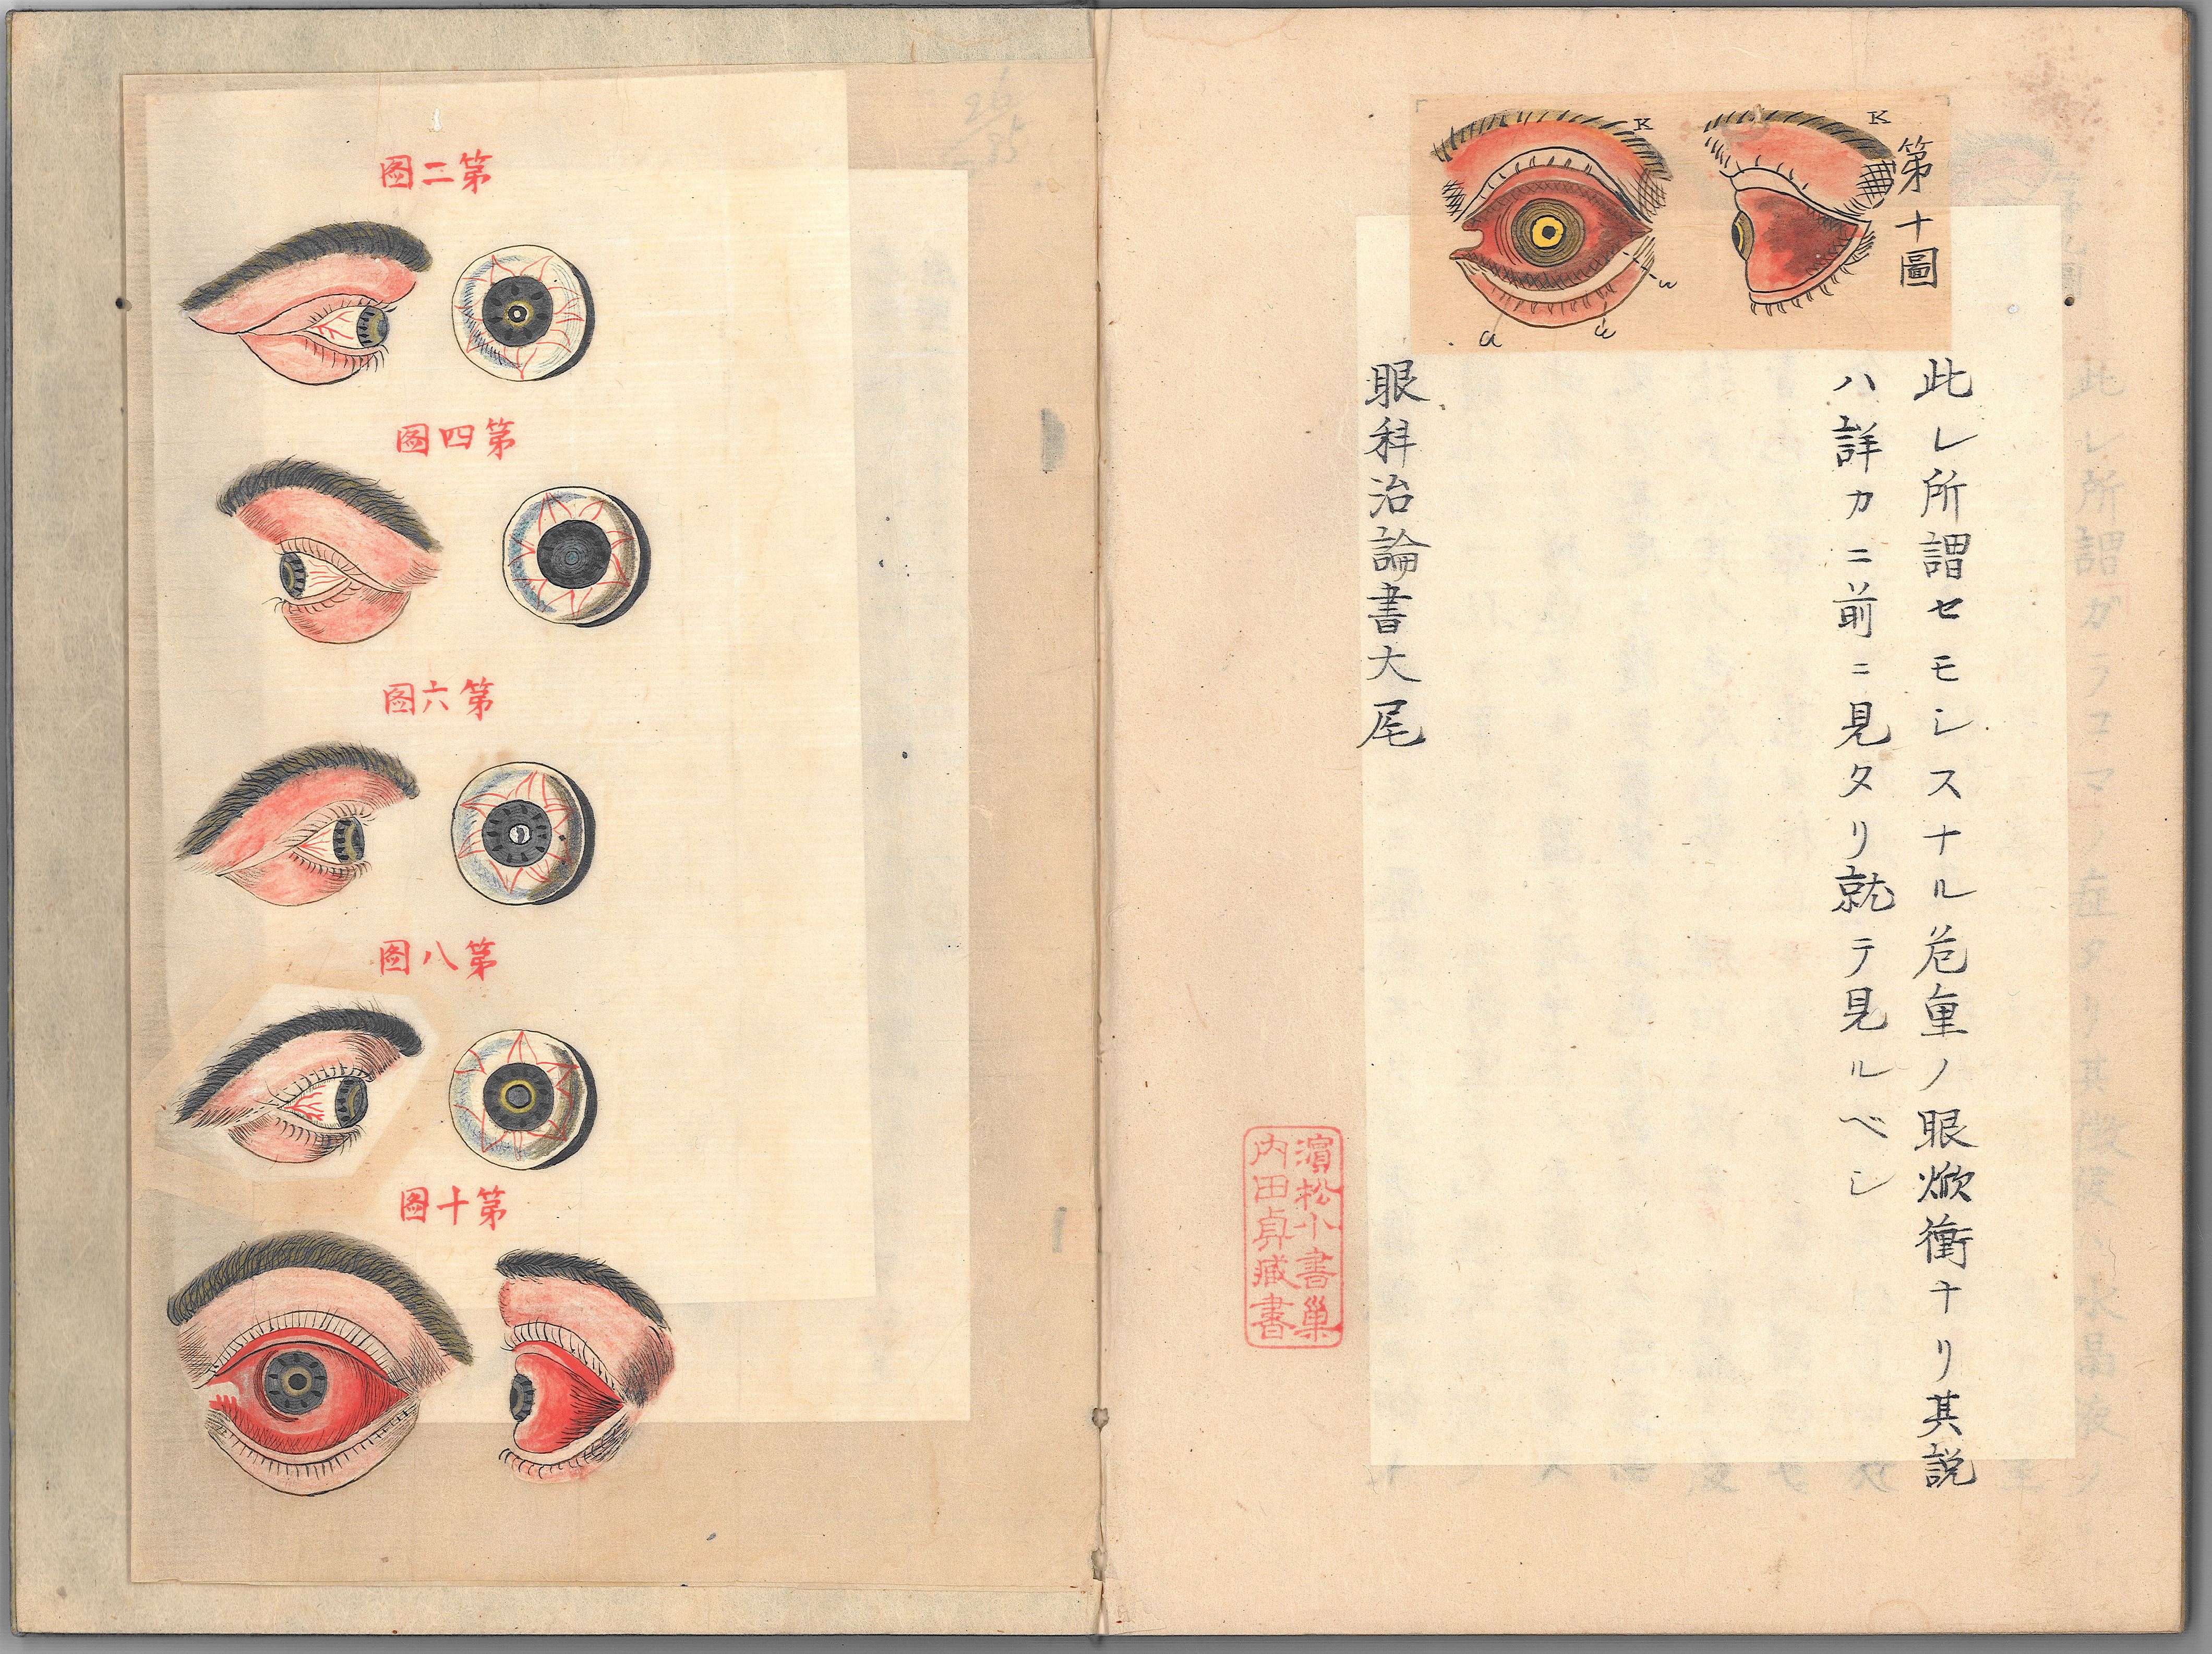 第十圖
K
K
a
此レ所謂セモシスナル危重ノ眼焮衝ナリ其説
ハ詳カニ前ニ見タリ就テ見ルベシ
眼科治論書大尾
濱松小書巢
内田貞藏書
第二圖
第四圖
第六圖
第八圖
第十圖